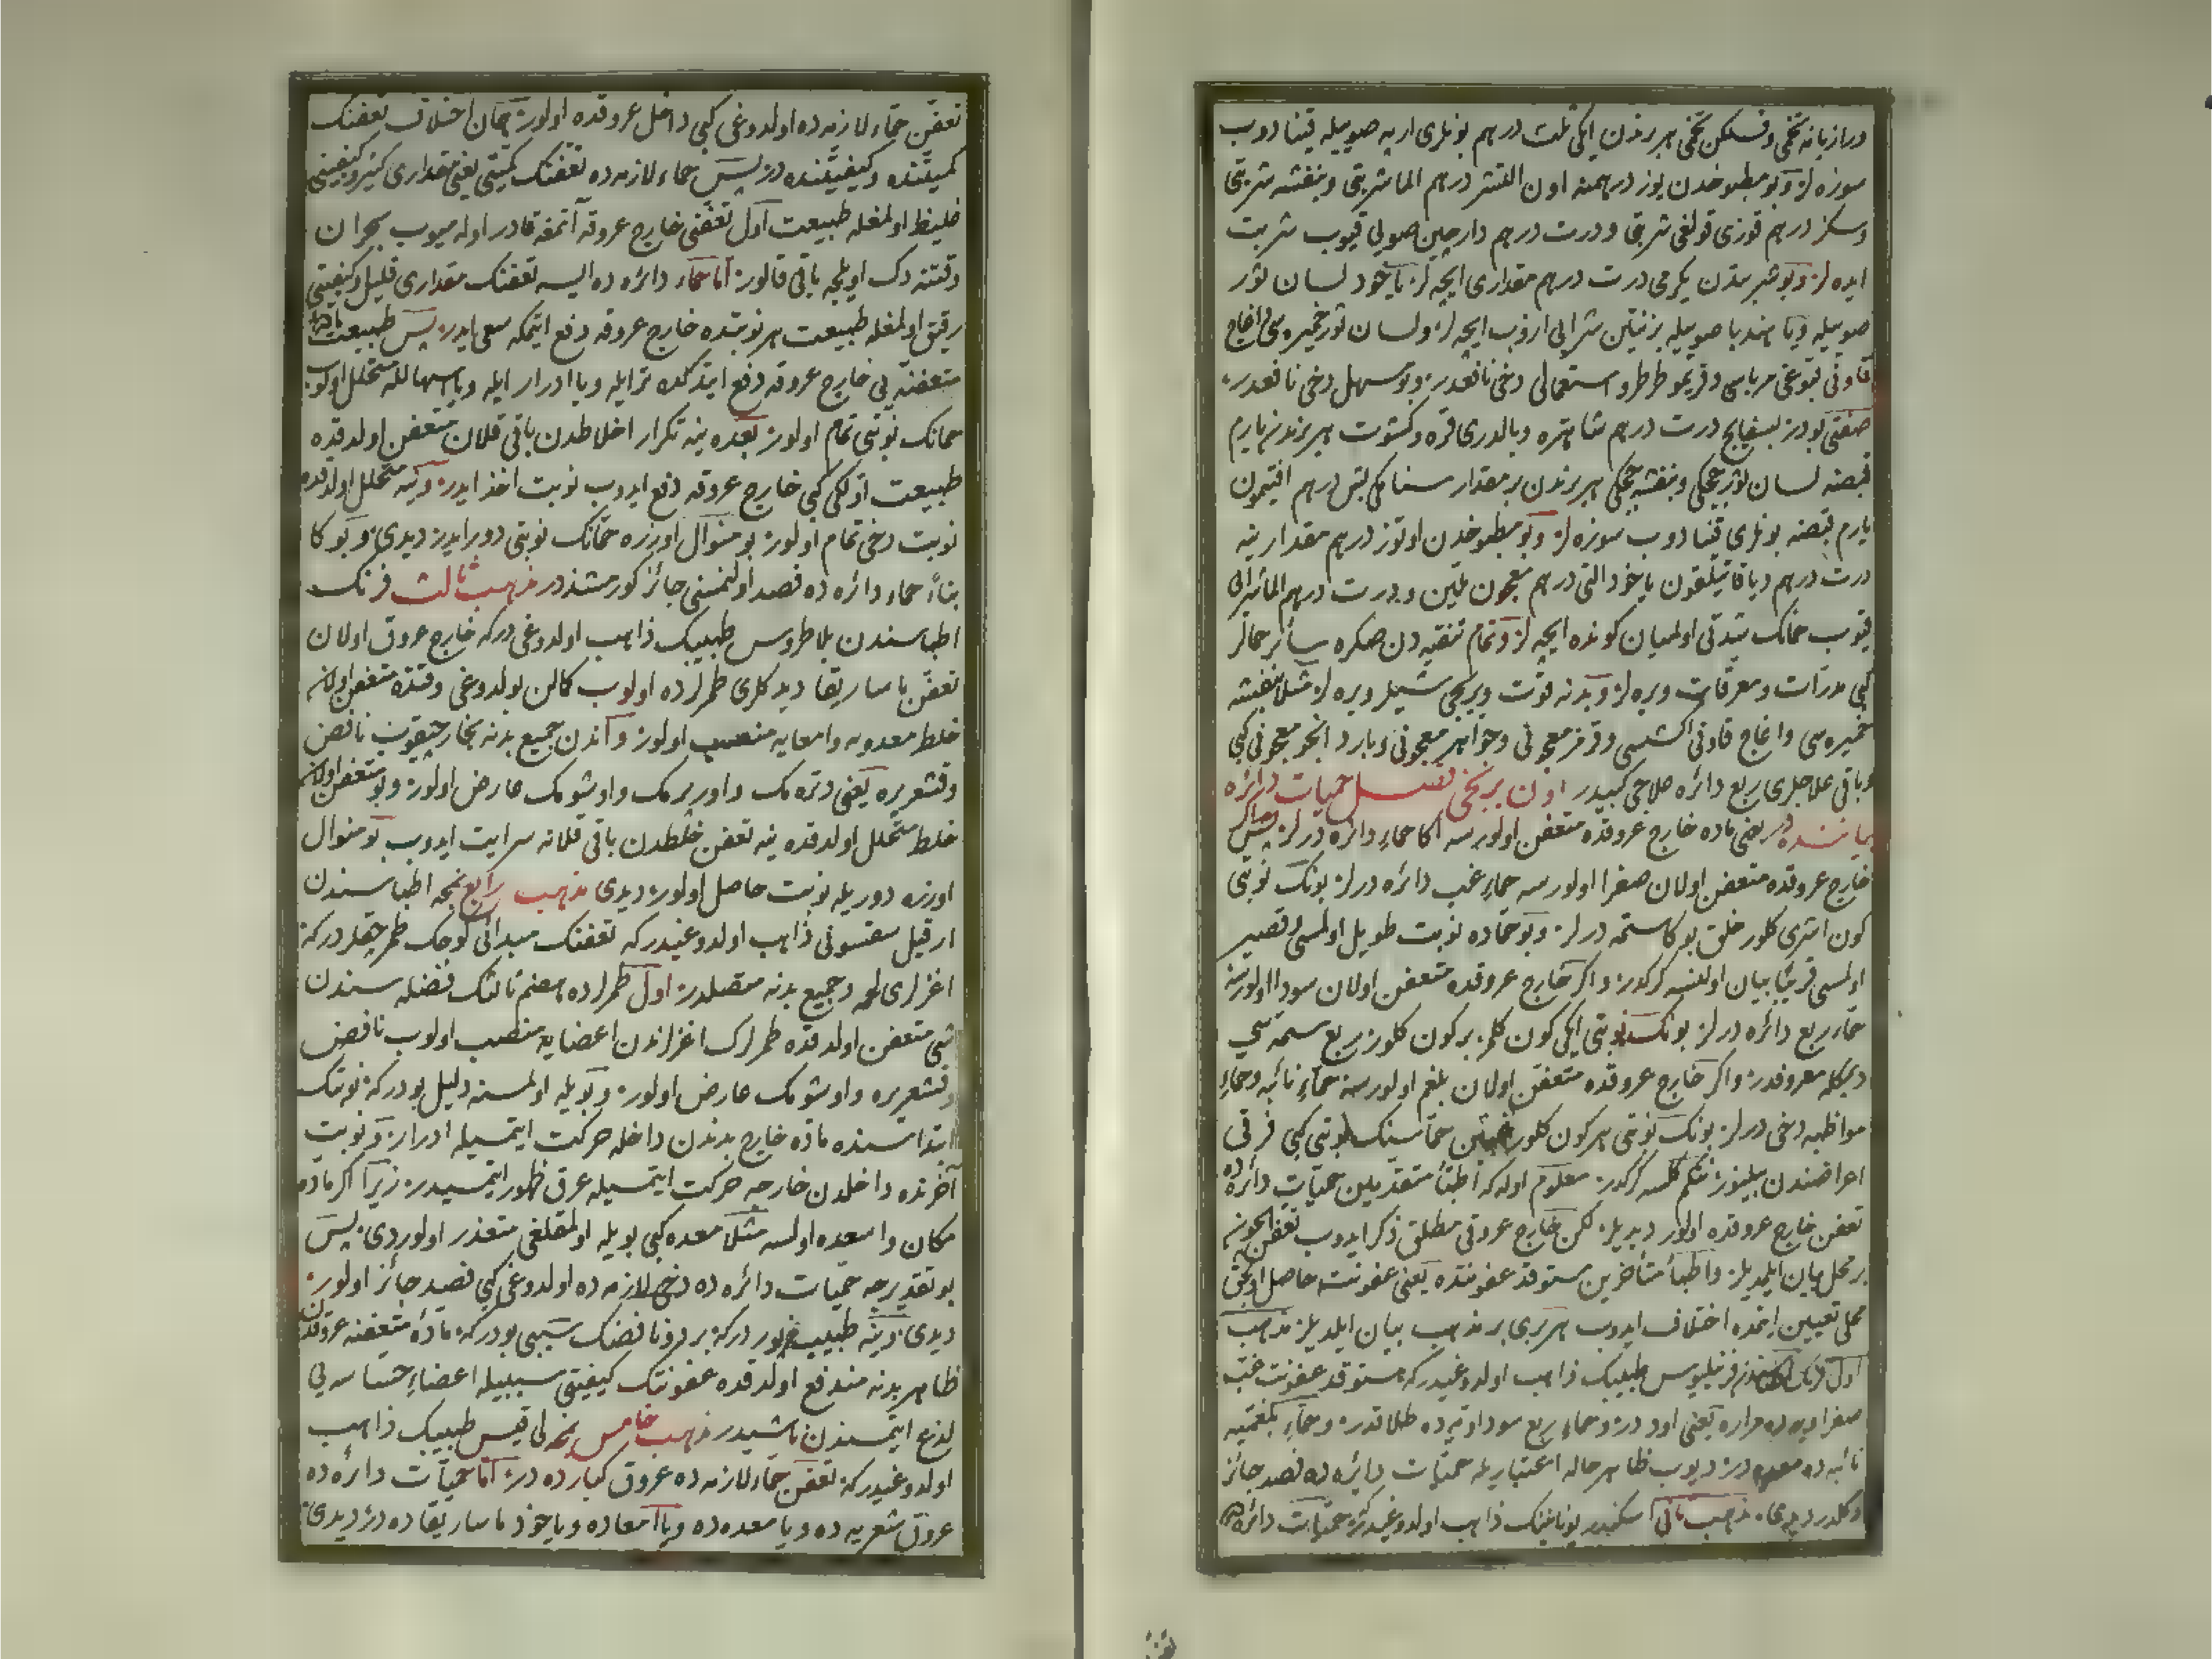 درازیانه تخمی و فسلکن تخمی هر برندن ایکی ثلث درهم بونلری اریه صویله قینادوب
سوزه لر و بو مطبوخدن یوز درهمنه اون التنشر درهم الما شربتی و بنفشه شربتی
و سکز درهم قوزی قولغی شربتی و درت درهم دارچین صویی قیوب شربت
ایده لر و بو شربتدن یکرمی درت درهم مقداری ایچه لر یاخود لسان ثور
صویله ویا هندبا صویله بزنتین شرابی ازوب ایچه لر و لسان ثور خمیره سی و اغاج
قاونی قبوغی مرباسی و قریمو طرطر و استعمالی دخی نافعدر و بو مسهل دخی نافعدر
صفتی بودر بسفایج درت درهم شاهتره و بالدری قره و کشوت هر برندن یارم
قبضه لسان ثور چچکی و بنفشه چچکی هر برندن بر مقدار سنا مکی بش درهم افتیمون
یارم قبضه بونلری قینادوب سوزه لر و بو مطبوخدن اوتوز درهم مقدارینه
درت درهم دیاقاتیلقون یاخود التی درهم معجون ملین و درت درهم الما شرابی
قیوب حمانک شدتی اولمیان کونده ایچه لر و تمام تنقیه دن صکره سائر حمالر
کبی مدرات و معرقات ویره لر و بدنه قوت ویریجی شیلر ویره لر مثلا بنفشه
خمیره سی و اغاج قاونی اکشیسی و قرمز معجونی و جواهر معجونی و بارد انجو معجونی کبی
و باقی علاجلری ربع دائره علاجی کبیدر اون برنجی فصل حمیات دائره
بیاننده در یعنی ماده خارج عروقده متعفن اولورسه اکا حماء دائره درلر پس اکر
خارج عروقده متعفن اولان صفرا اولورسه حماء غب دائره درلر بونک نوبتی
کون اشری کلور خلق بوکا ستمه درلر و بو حماده نوبت طویل اولمسی و قصیر
اولمسی قریبا بیان اولنسه کرکدر و اکر خارج عروقده متعفن اولان سودا اولورسه
حماء ربع دائره درلر بونک نوبتی ایکی کون کلمز بر کون کلور ربع ستمه سی
دیمکله معروفدر و اکر خارج عروقده متعفن اولان بلغم اولورسه حماء نائبه و حماء
مواظبه دخی درلر بونک نوبتی هر کون کلور حماسنک نوبتی کبی فرقی
اعراضندن بیلینور نتکم کلسه کرکدر معلوم اوله که اطباء متقدمین حمیات دائره ده
تعفن خارج عروقده اولور دیدیلر لکن خارج عروقی مطلق ذکر ایدوب تعفن ایچون
بر محل بیان ایلمدیلر و اطباء متأخرین مستوقد عفونتده یعنی عفونت حاصل اوله جق
محلی تعیین اتمده اختلاف ایدوب هر بری بر مذهب بیان ایلدیلر مذهب
اول فرنلیوس طبیبک ذاهب اولدوغیدر که مستوقد عفونت غب
صفراویه ده مراره یعنی اوددر و حماء ربع سوداویه ده طلاقدر و حماء بلغمیه
نائبه ده معده در دیوب ظاهر حاله اعتباریله حمیات دائره ده فصد جائز
دکلدر دیدی مذهب ثانی اسکندر یونانینک ذاهب اولدوغیدر که حمیات دائره ده
تعفن
تعفن حماء لازمه ده اولدوغی کبی داخل عروقده اولور همان اختلاف تعفنک
کمیتنده و کیفیتنده در پس حماء لازمه ده تعفنک کمیتی یعنی مقداری کثیر و کیفیتی
غلیظ اولمغله طبیعت اول تعفنی خارج عروقه آتمغه قادر اوله میوب بحران
وقتنه دک اویلجه باقی قالور اما حماء دائره ده ایسه تعفنک مقداری قلیل و کیفیتی
رقیق اولمغله طبیعت هر نوبتده خارج عروقه دفع ایتمکه سعی ایدر پس طبیعت ماده
متعفنه یی خارج عروقه دفع ایتدکده تر ایله ویا ادرار ایله ویا اسهالله متحلل اولوب
حمانک نوبتی تمام اولور بعده ینه تکرار اخلاطدن باقی قلان متعفن اولدقده
طبیعت اولکی کبی خارج عروقه دفع ایدوب نوبت اخذ ایدر و ینه متحلل اولدقده
نوبت دخی تمام اولور بو منوال اوزره حمانک نوبتی دور ایدر دیدی و بوکا
بناءً حماء دائره ده فصد اولنمسنی جائز کورمشدر مذهب ثالث فرنک
اطباسندن پلاطروس طبیبک ذاهب اولدوغی در که خارج عروق اولان
تعفن ماساریقا دیدکلری طمرلرده اولوب کمالن بولدوغی وقتده متعفن اولان
خلط معدویه و امعایه منصب اولور و آندن جمیع بدنه بخار چیقوب نافض
و قشعریره یعنی دتره مک و اورپرمک و اوشومک عارض اولور و بو متعفن اولان
خلط متحلل اولدقده ینه تعفن خلطدن باقی قلانه سرایت ایدوب بو منوال
اوزره دوریله نوبت حاصل اولور دیدی مذهب رابع نمچه اطباسندن
ارقیل سقسونی ذاهب اولدوغیدر که تعفنک مبدائی کوچک طمرجقلردر که
اغزلری لحمه و جمیع بدنه متصلدر اول طمرلرده هضم ثالثک فضله سندن
شی متعفن اولدقده طمرلرک اغزلرندن اعضایه منصب اولوب نافض
و قشعریره و اوشومک عارض اولور و بویله اولمسنه دلیل بودر که نوبتک
ابتداسنده ماده خارج بدندن داخله حرکت ایتمسیله ادرار و نوبت
آخرنده داخلدن خارجه حرکت ایتمسیله عرق ظهور ایتمسیدر زیرا اکر ماده
مکان واسعده اولسه مثلا معده کبی بویله اولمقلغی متعذر اولوردی پس
بو تقدیرجه حمیات دائره ده دخی لازمه ده اولدوغی کبی فصد جائز اولور
دیدی و ینه طبیب مزبور درکه برد و نافضک سببی بودر که ماده متعفنه عروقدن
ظاهر بدنه مندفع اولدقده عفونتک کیفیتی سببیله اعضاء حساسه یی
لذع ایتمسندن ناشیدر مذهب خامس نمچه لی قیس طبیبک ذاهب
اولدوغیدر که تعفن حماء لازمه ده عروق کبارده در اما حمیات دائره ده
عروق شعریه ده ویا معده ده ویا امعاده ویاخود ماساریقاده در دیدی